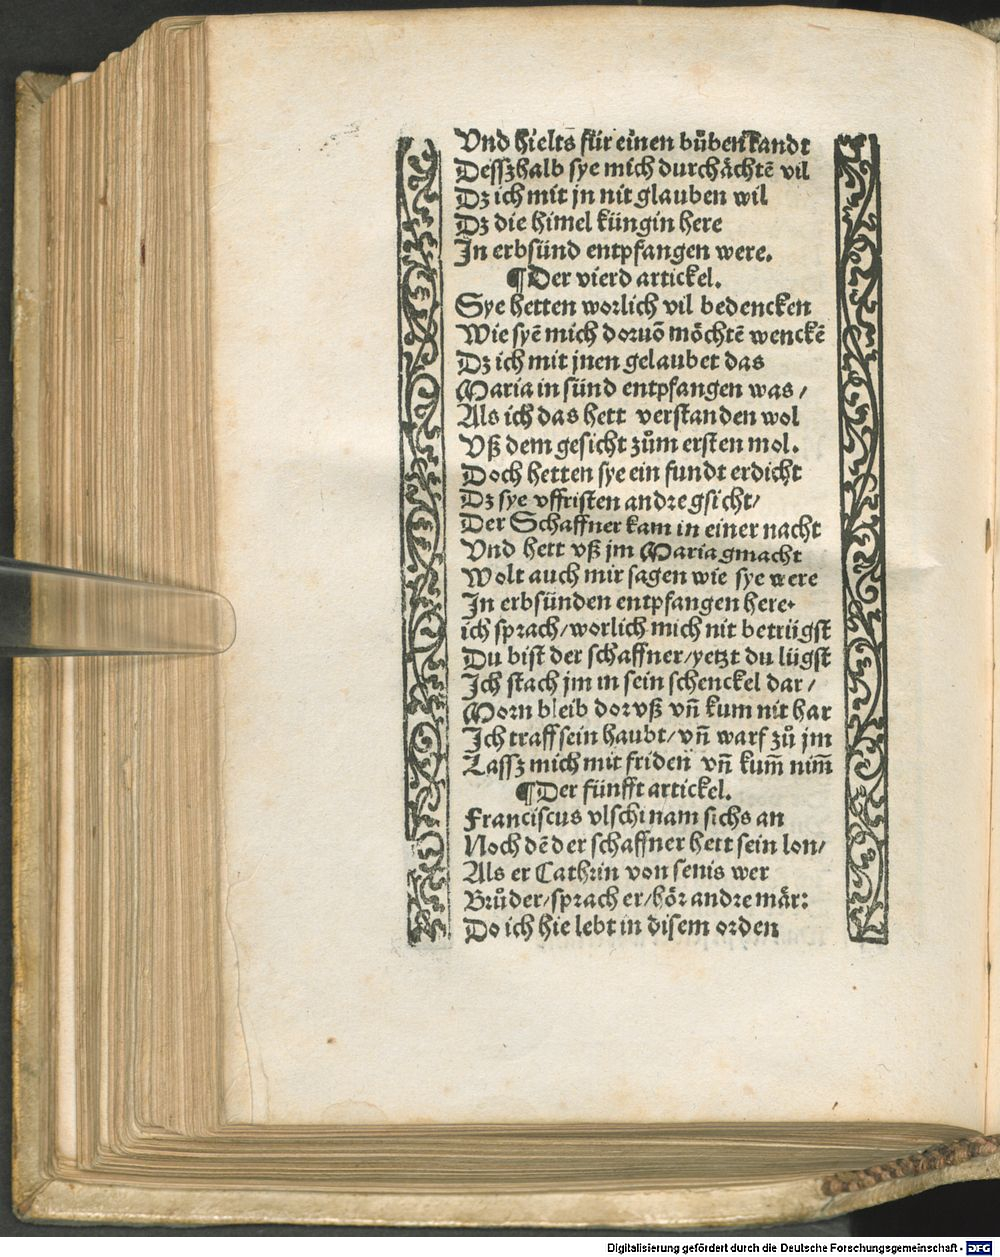 Vnd hielts für einen bůben tandt
Dessʒhalb sye mich durchächtē vil
Dʒ ich mit jn nit glauben wil
Dʒ die himel küngin here
In erbsünd entpfangen were.
¶Der vierd artickel.
Sye hetten worlich vil bedencken
Wie syē mich doruō möchtē wenckē
Dʒ ich mit jnen gelaubet das
Maria in sünd entpfangen was /
Als ich das hett verstanden wol
Vß dem gesicht zům ersten mol.
Doch hetten sye ein fundt erdicht
Dʒ sye vffristen andre gsicht/
Der Schaffner kam in einer nacht
Vnd hett vß jm Maria gmacht
Wolt auch mir sagen wie sye were
In erbsünden entpfangen here.
ich sprach/worlich mich nit betrügst
Du bist der schaffner/yetzt du lügst
Ich stach jm in sein schenckel dar/
Morn bleib dorvß vñ kum nit har
Ich traff sein haubt/vñ warf zů jm
Lassʒ mich mit friden vñ kum̄ nim̄
¶Der fünfft artickel.
Franciscus vlschi nam sichs an
Noch dē der schaffner hett sein lon/
Als er Cathrin von senis wer
Brůder/sprach er/hör andre mär:
Do ich hie lebt in disem orden
Digitalisierung gefördert durch die Deutsche Forschungsgemeinschaft - DFG